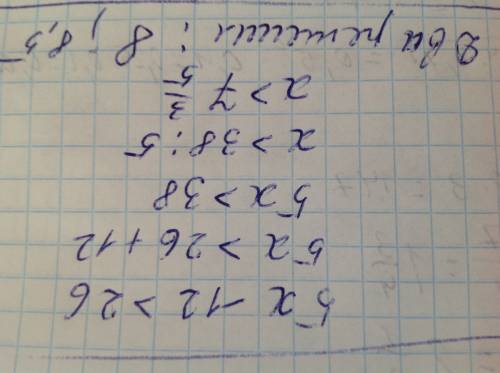 5x - 12 > 26
5x > 26 + 12
5x > 38
x > 38 : 5
x > 7 3/5
Два решения : 8 ; 8,5